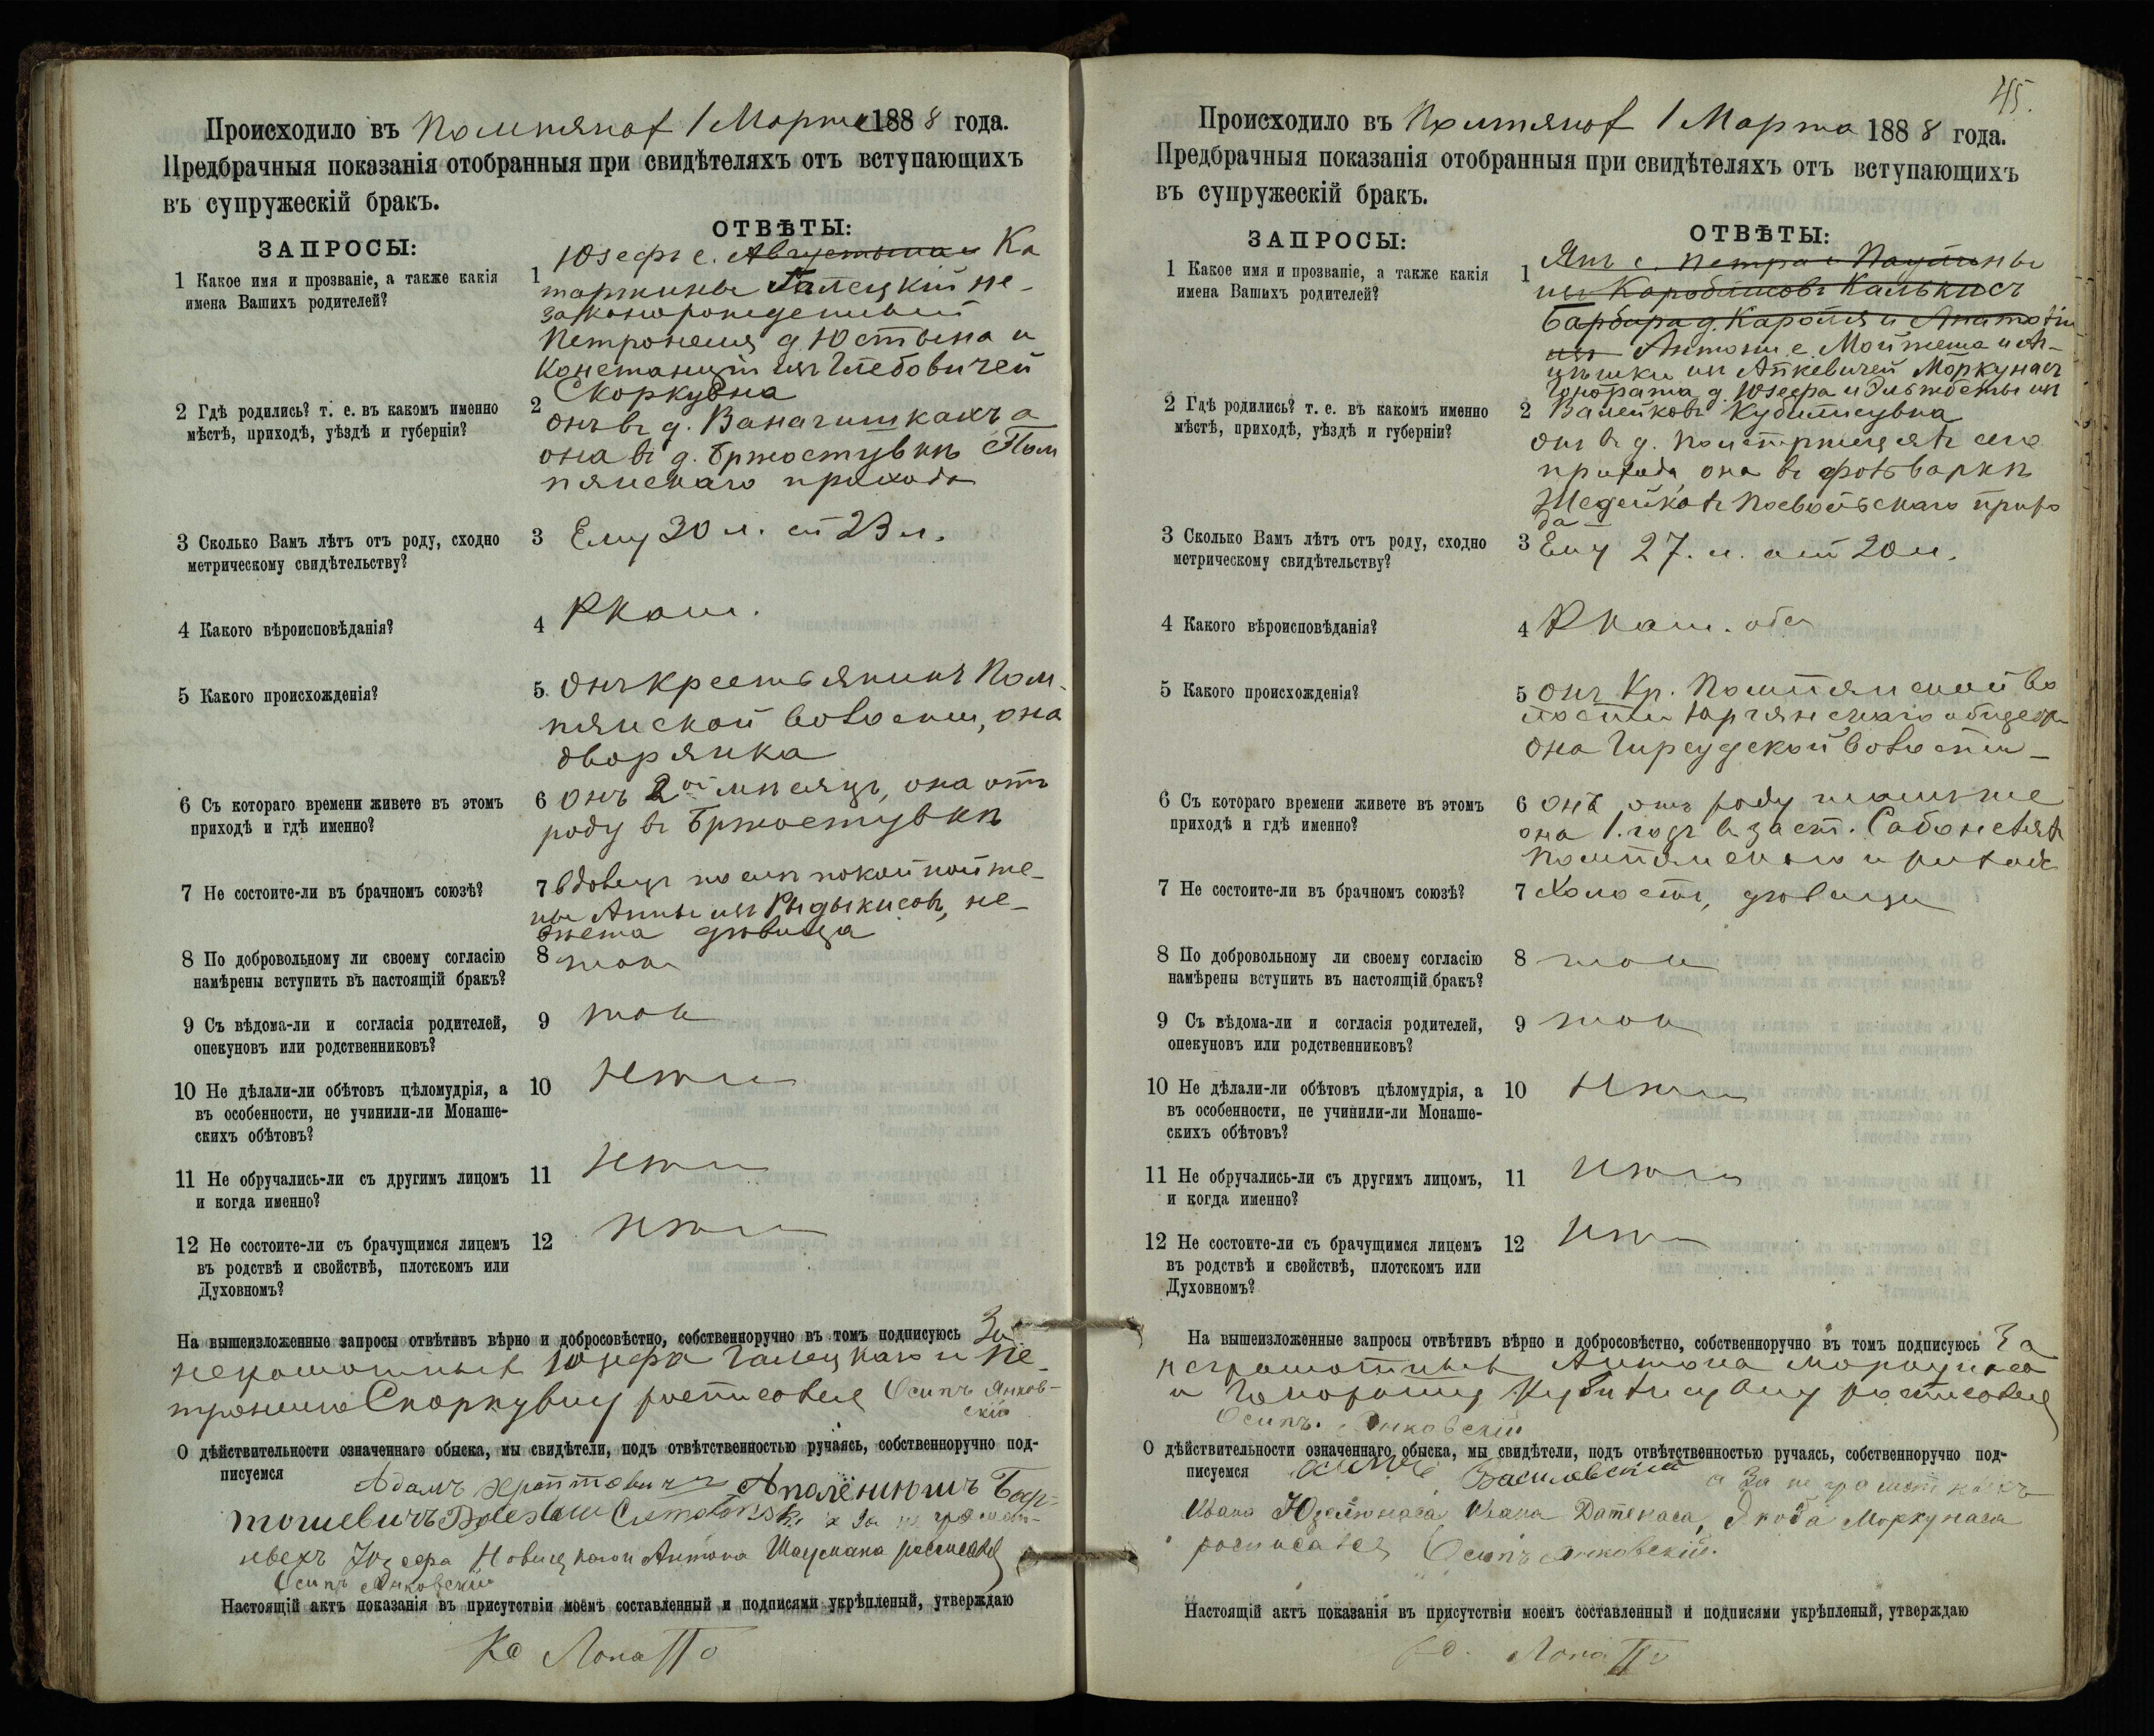 Происходило въ 1 Марта 1888 года.
Предбрачныя показанія отобранныя при свидѣтеляхъ отъ вступающихъ
въ супружескій бракъ.
ЗАПРОСЫ:
ОТВѢТЫ:
1 Какое имя и прозваніе, а также какія
имена Вашихъ родителей?
1 Юзефъ с. Августына и Ка
таржины Галецкій не-
законорожденный
Петронеля д. Юстына и
Констанціи изъ Глебовичей
Скоркувна
2 Гдѣ родились? т. е. въ какомъ именно
мѣстѣ, приходѣ, уѣздѣ и губерніи?
2 онъ въ д. Ваначишкахъ а
она въ д. Бржостувкѣ Пом
пянскаго прихода
3 Сколько Вамъ лѣтъ отъ роду, сходно
метрическому свидѣтельству?
3 Ему 30 л. ей 23 л.
4 Какого вѣроисповѣданія?
4 Ркат.
5 Какого происхожденія?
5. Онъ крестьянинъ Пом-
пянской волости, она
дворянка
6 Съ котораго времени живете въ этомъ
приходѣ и гдѣ именно?
6 Онъ 2ой мѣсяцъ, она отъ
роду въ Бржостувкѣ
7 Не состоите-ли въ брачномъ союзѣ?
7 вдовецъ послѣ покойной же-
ны Анны изъ Рыдыкисовъ, не-
вѣста дѣвица
8 По добровольному ли своему согласію
намѣрены вступить въ настоящій бракъ?
8 так
9 Съ вѣдома-ли и согласія родителей,
опекуновъ или родственниковъ?
9 так
10 Не дѣлали-ли обѣтовъ цѣломудрія, а
въ особенности, не учинили-ли Монаше-
скихъ обѣтовъ?
10 Нѣтъ
11 Не обручались-ли съ другимъ лицомъ
и когда именно?
11 Нѣтъ
12 Не состоите-ли съ брачущимся лицемъ
въ родствѣ и свойствѣ, плотскомъ или
Духовномъ?
12 Нѣтъ
На вышеизложенные запросы отвѣтивъ вѣрно и добросовѣстно, собственноручно въ томъ подписуюсь За
неграмотныхъ Юзефа Галецкаго и Пе-
тронелю Скоркувну росписовся Осипъ Янков-
скій
О дѣйствительности означеннаго обыска, мы свидѣтели, подъ отвѣтственностью ручаясь, собственноручно под-
писуемся Адамъ
а за не грамот-
ныхъ Юзефа Новицкаго и Антона росписался
Осипъ Янковскій
Настоящій актъ показанія въ присутствіи моемъ составленный и подписями укрѣпленый, утверждаю
Кс Лопатто
45.
Происходило въ 1 Марта 1888 года.
Предбрачныя показанія отобранныя при свидѣтеляхъ отъ вступающихъ
въ супружескій бракъ.
ЗАПРОСЫ:
ОТВѢТЫ:
1 Какое имя и прозваніе, а также какія
имена Вашихъ родителей?
1 Янъ с. Петра и Паулины
изъ
Барбара д. Кароля и
Антони с. и
изъ Моркунасъ
Гонората д. Юзефа и Эльжбеты изъ
2 Гдѣ родились? т. е. въ какомъ именно
мѣстѣ, приходѣ, уѣздѣ и губерніи?
2
онъ въ д. сего
прихода, она въ фольваркѣ
прихо
да
3 Сколько Вамъ лѣтъ отъ роду, сходно
метрическому свидѣтельству?
3 Ему 27. л. ей 20 л.
4 Какого вѣроисповѣданія?
4 Ркат. оба
5 Какого происхожденія?
5 онъ Кр. Помпянской во
лости Юргянскаго общества
она волости
6 Съ котораго времени живете въ этомъ
приходѣ и гдѣ именно?
6 онъ отъ роду тамъ же
она 1. годъ въ заст.
Помпянскаго прихода
7 Не состоите-ли въ брачномъ союзѣ?
7 Холостъ, дѣвица
8 По добровольному ли своему согласію
намѣрены вступить въ настоящій бракъ?
8 так
9 Съ вѣдома-ли и согласія родителей,
опекуновъ или родственниковъ?
9 так
10 Не дѣлали-ли обѣтовъ цѣломудрія, а
въ особенности, не учинили-ли Монаше-
скихъ обѣтовъ?
10 Нѣтъ
11 Не обручались-ли съ другимъ лицомъ,
и когда именно?
11 Нѣтъ
12 Не состоите-ли съ брачущимся лицемъ
въ родствѣ и свойствѣ, плотскомъ или
Духовномъ?
12 Нѣтъ
На вышеизложенные запросы отвѣтивъ вѣрно и добросовѣстно, собственноручно въ томъ подписуюсь За
неграмотныхъ Антона Моркунаса
и Гонорату росписовся
Осипъ Янковскій
О дѣйствительности означеннаго обыска, мы свидѣтели, подъ отвѣтственностью ручаясь, собственноручно под-
писуемся Василевскій а за не грамотныхъ
Ивана Ивана Якоба Моркунаса
росписался Осипъ Янковскій.
Настоящій актъ показанія въ присутствіи моемъ составленный и подписями укрѣпленый, утверждаю
Кс. Лопатто